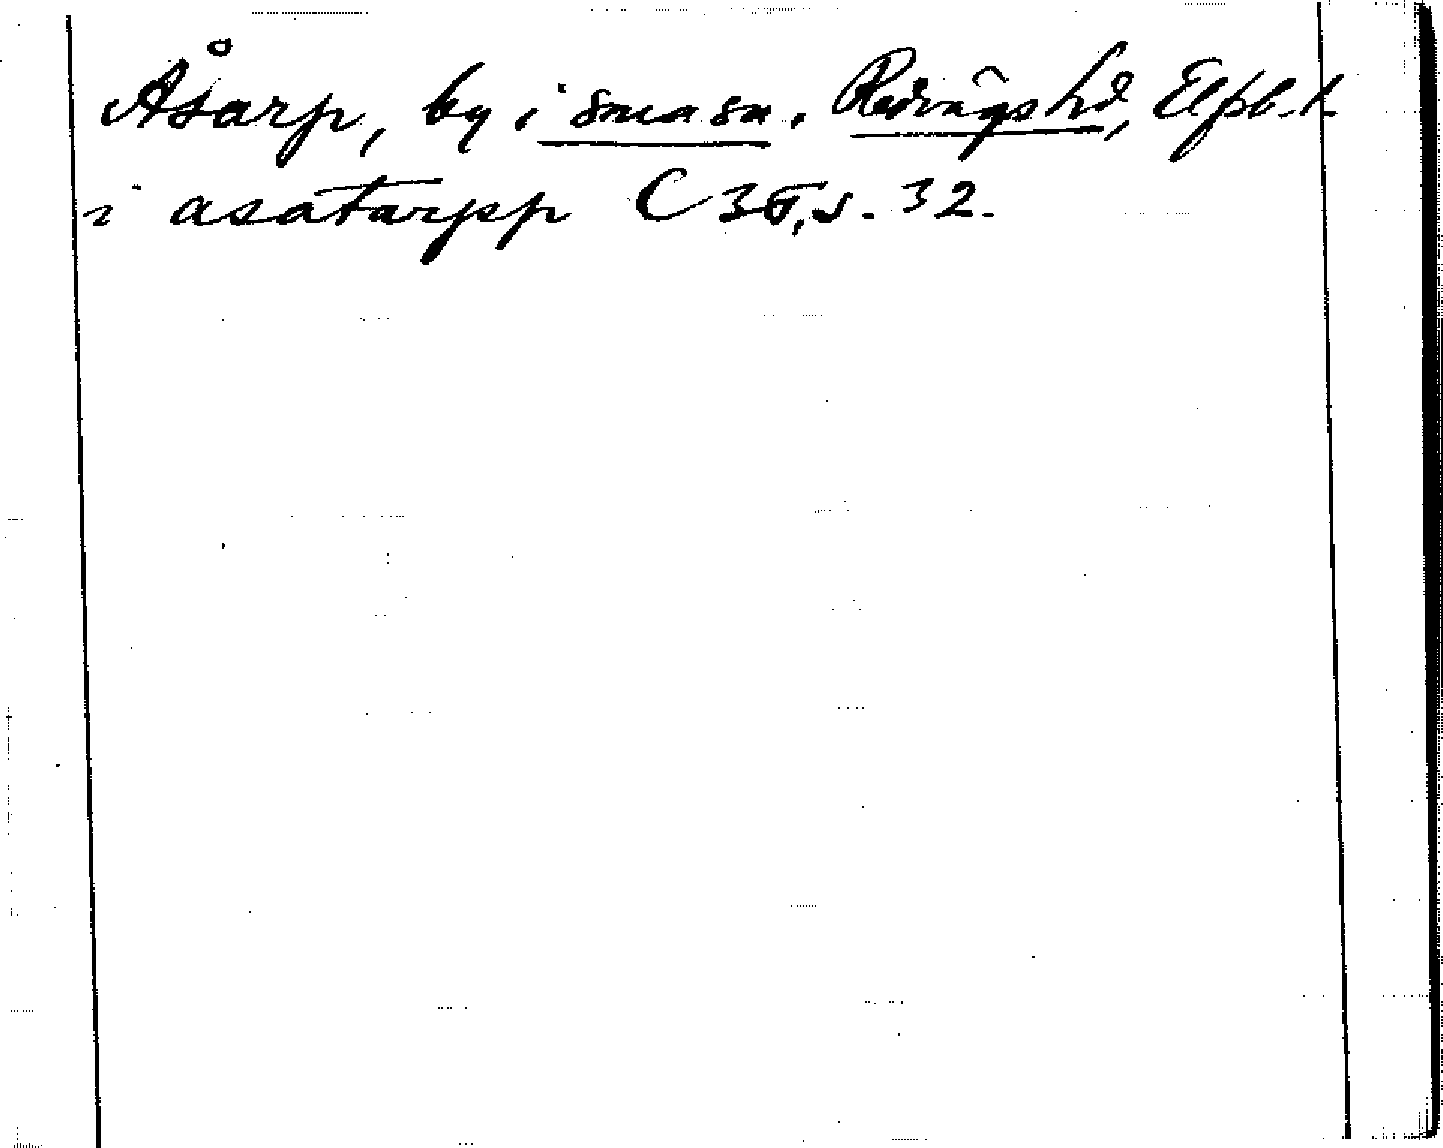 Åsarp, by i Smula sn. Redvägs hd, Elfsb. l.
i asatarpp C 35, s. 32.